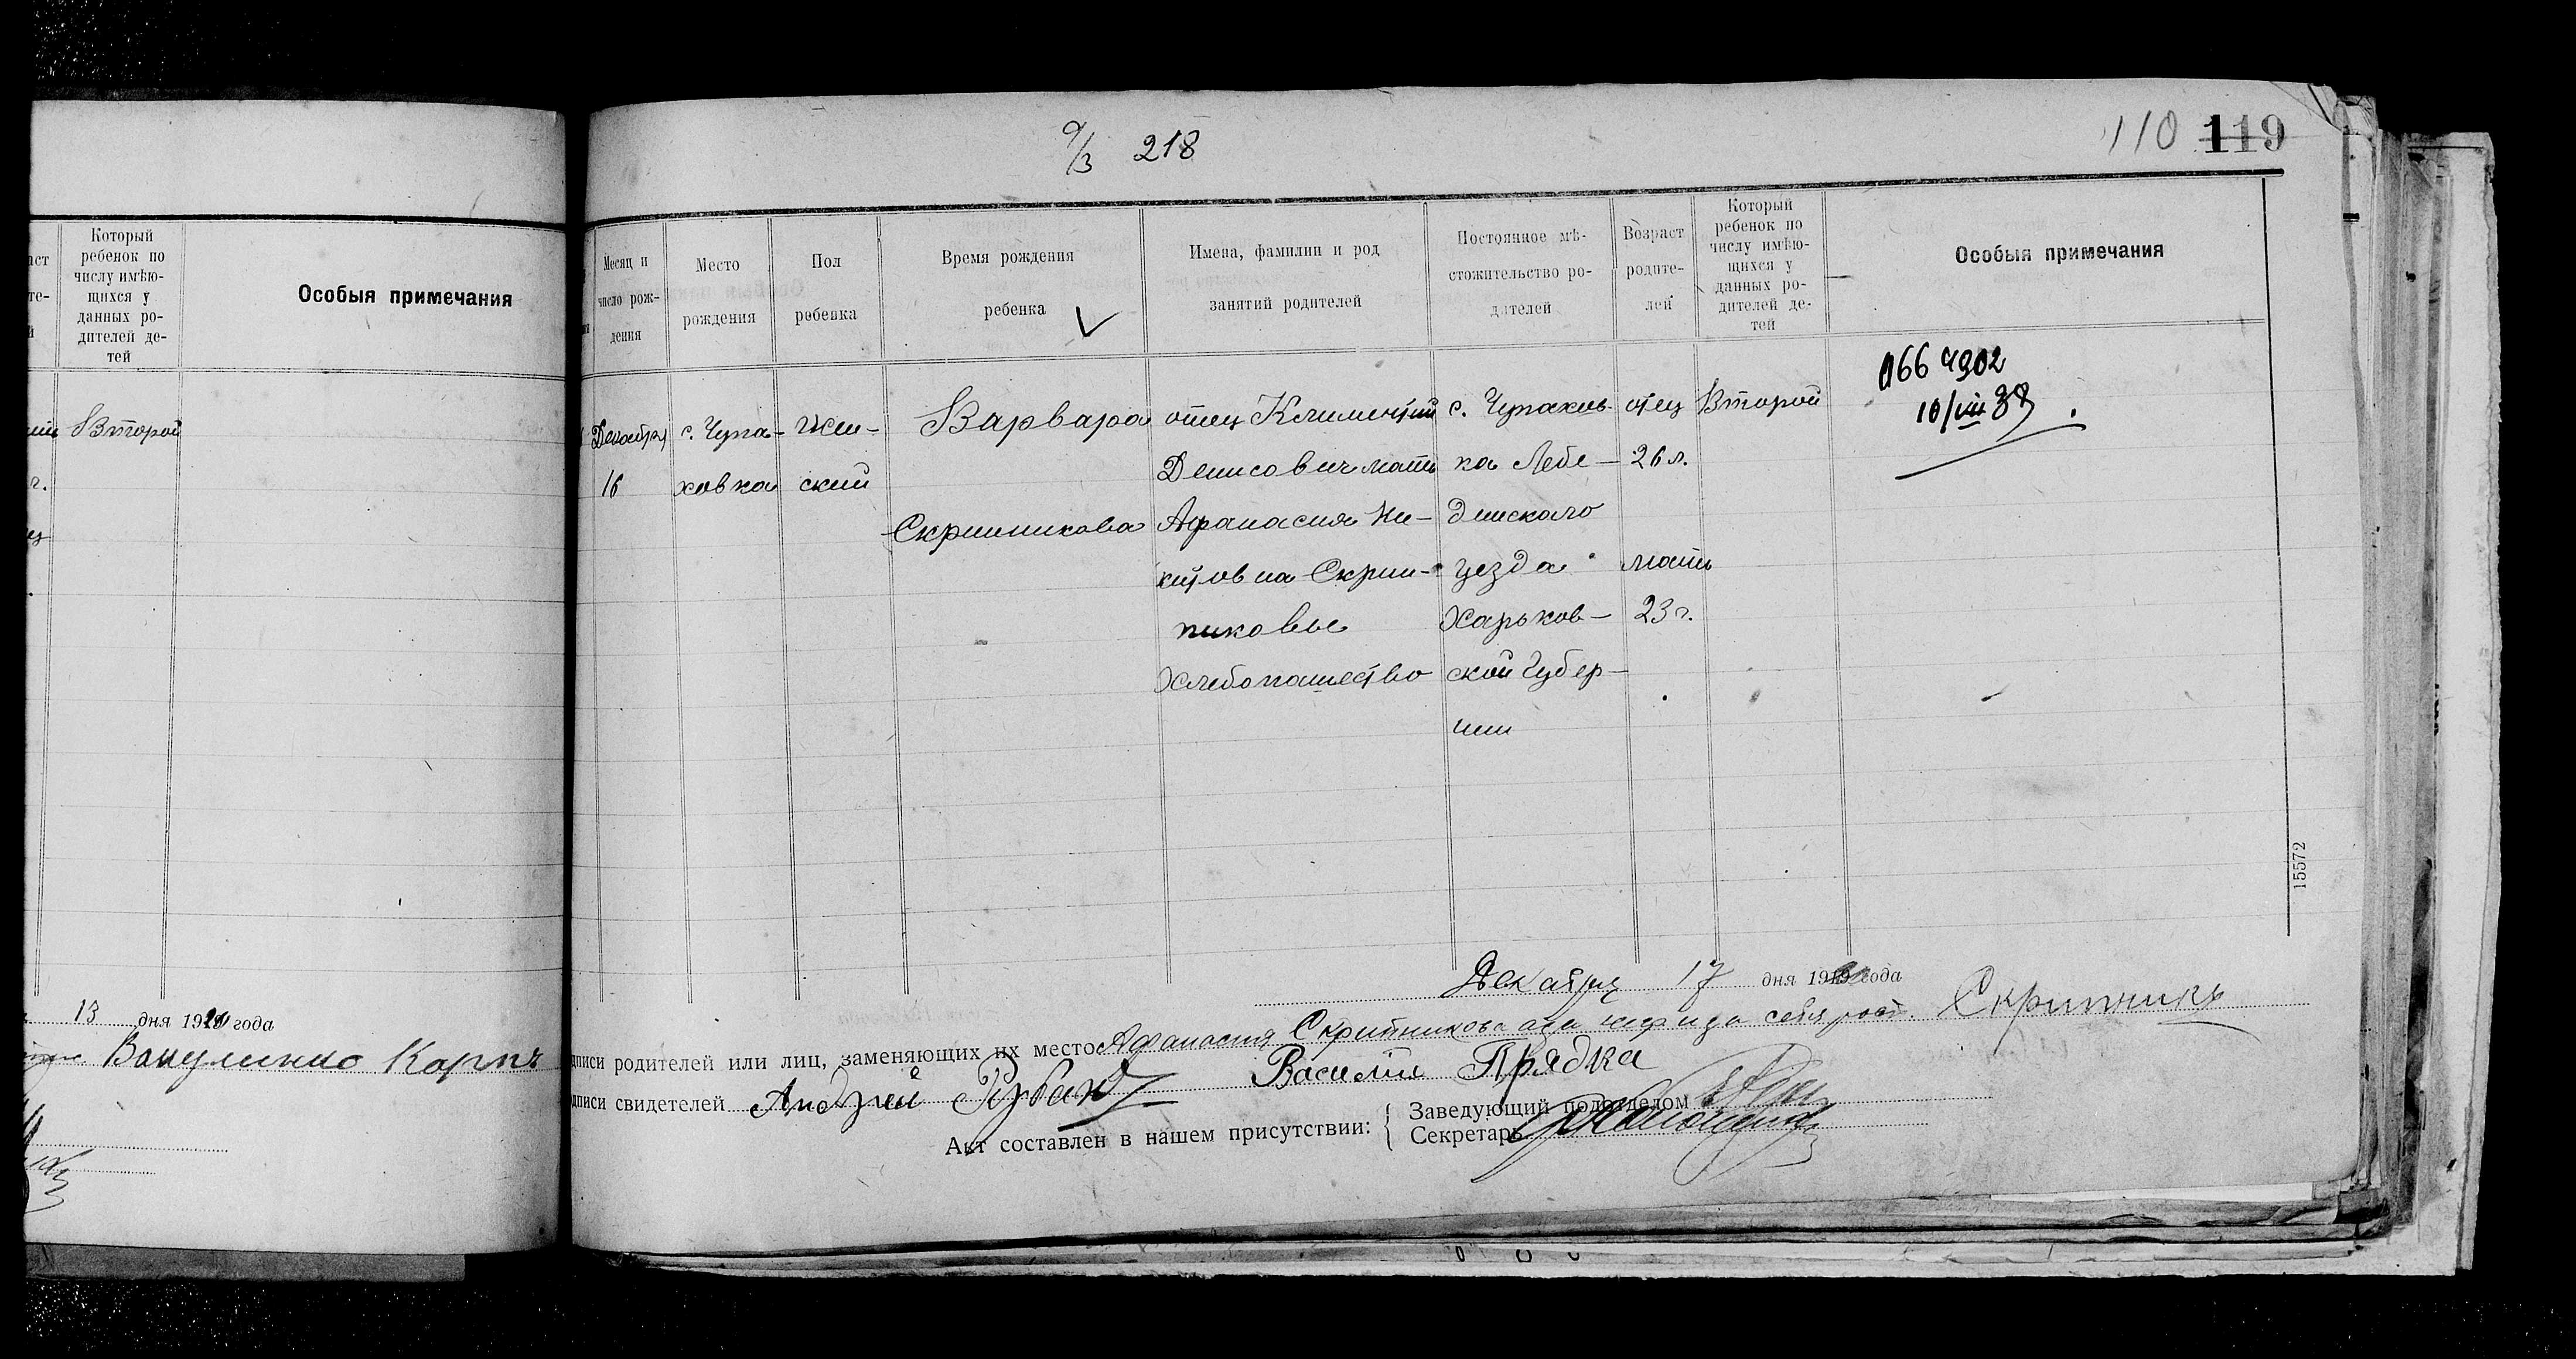 аст
те-
й
Который
ребенок по
числу имѣю-
щихся у
данных ро-
дителей де-
тей
Особыя примечания
Второй
г.
13 дня 19 года
Вакуленко Карпъ
9/3 218
110 119
Месяц и
число рож-
дения
Место
рождения
Пол
ребенка
Время рождения
ребенка
Имена, фамилии и род
занятий родителей
Постоянное мѣ-
стожительство ро-
дителей
Возраст
родите-
лей
Который
ребенок по
числу имѣю-
щихся у
данных ро-
дителей де-
тей
Особыя примечания
Декабря
16
с. Чупа-
ховка
жен-
ский
Варвара
Скрипникова
отец Климентий
Денисович мать
Афанасия Ни-
китовна Скрип-
никовы
Хлебопашество
с. Чупахов-
ка Лебе-
динскаго
уезда
Харьков-
ской Губер-
нии
отец
26 л.
мать
23 г.
Второй
066 4902
10/VIII 38
15572
Декабря 17 дня 19 года
дписи родителей или лиц, заменяющих их место Афанасия Скрипникова а за неё из за себя Скрипникъ
дписи свидетелей Андрей Рубан Василий Прядка
Акт составлен в нашем присутствии:
Заведующий подотделом
Секретарь